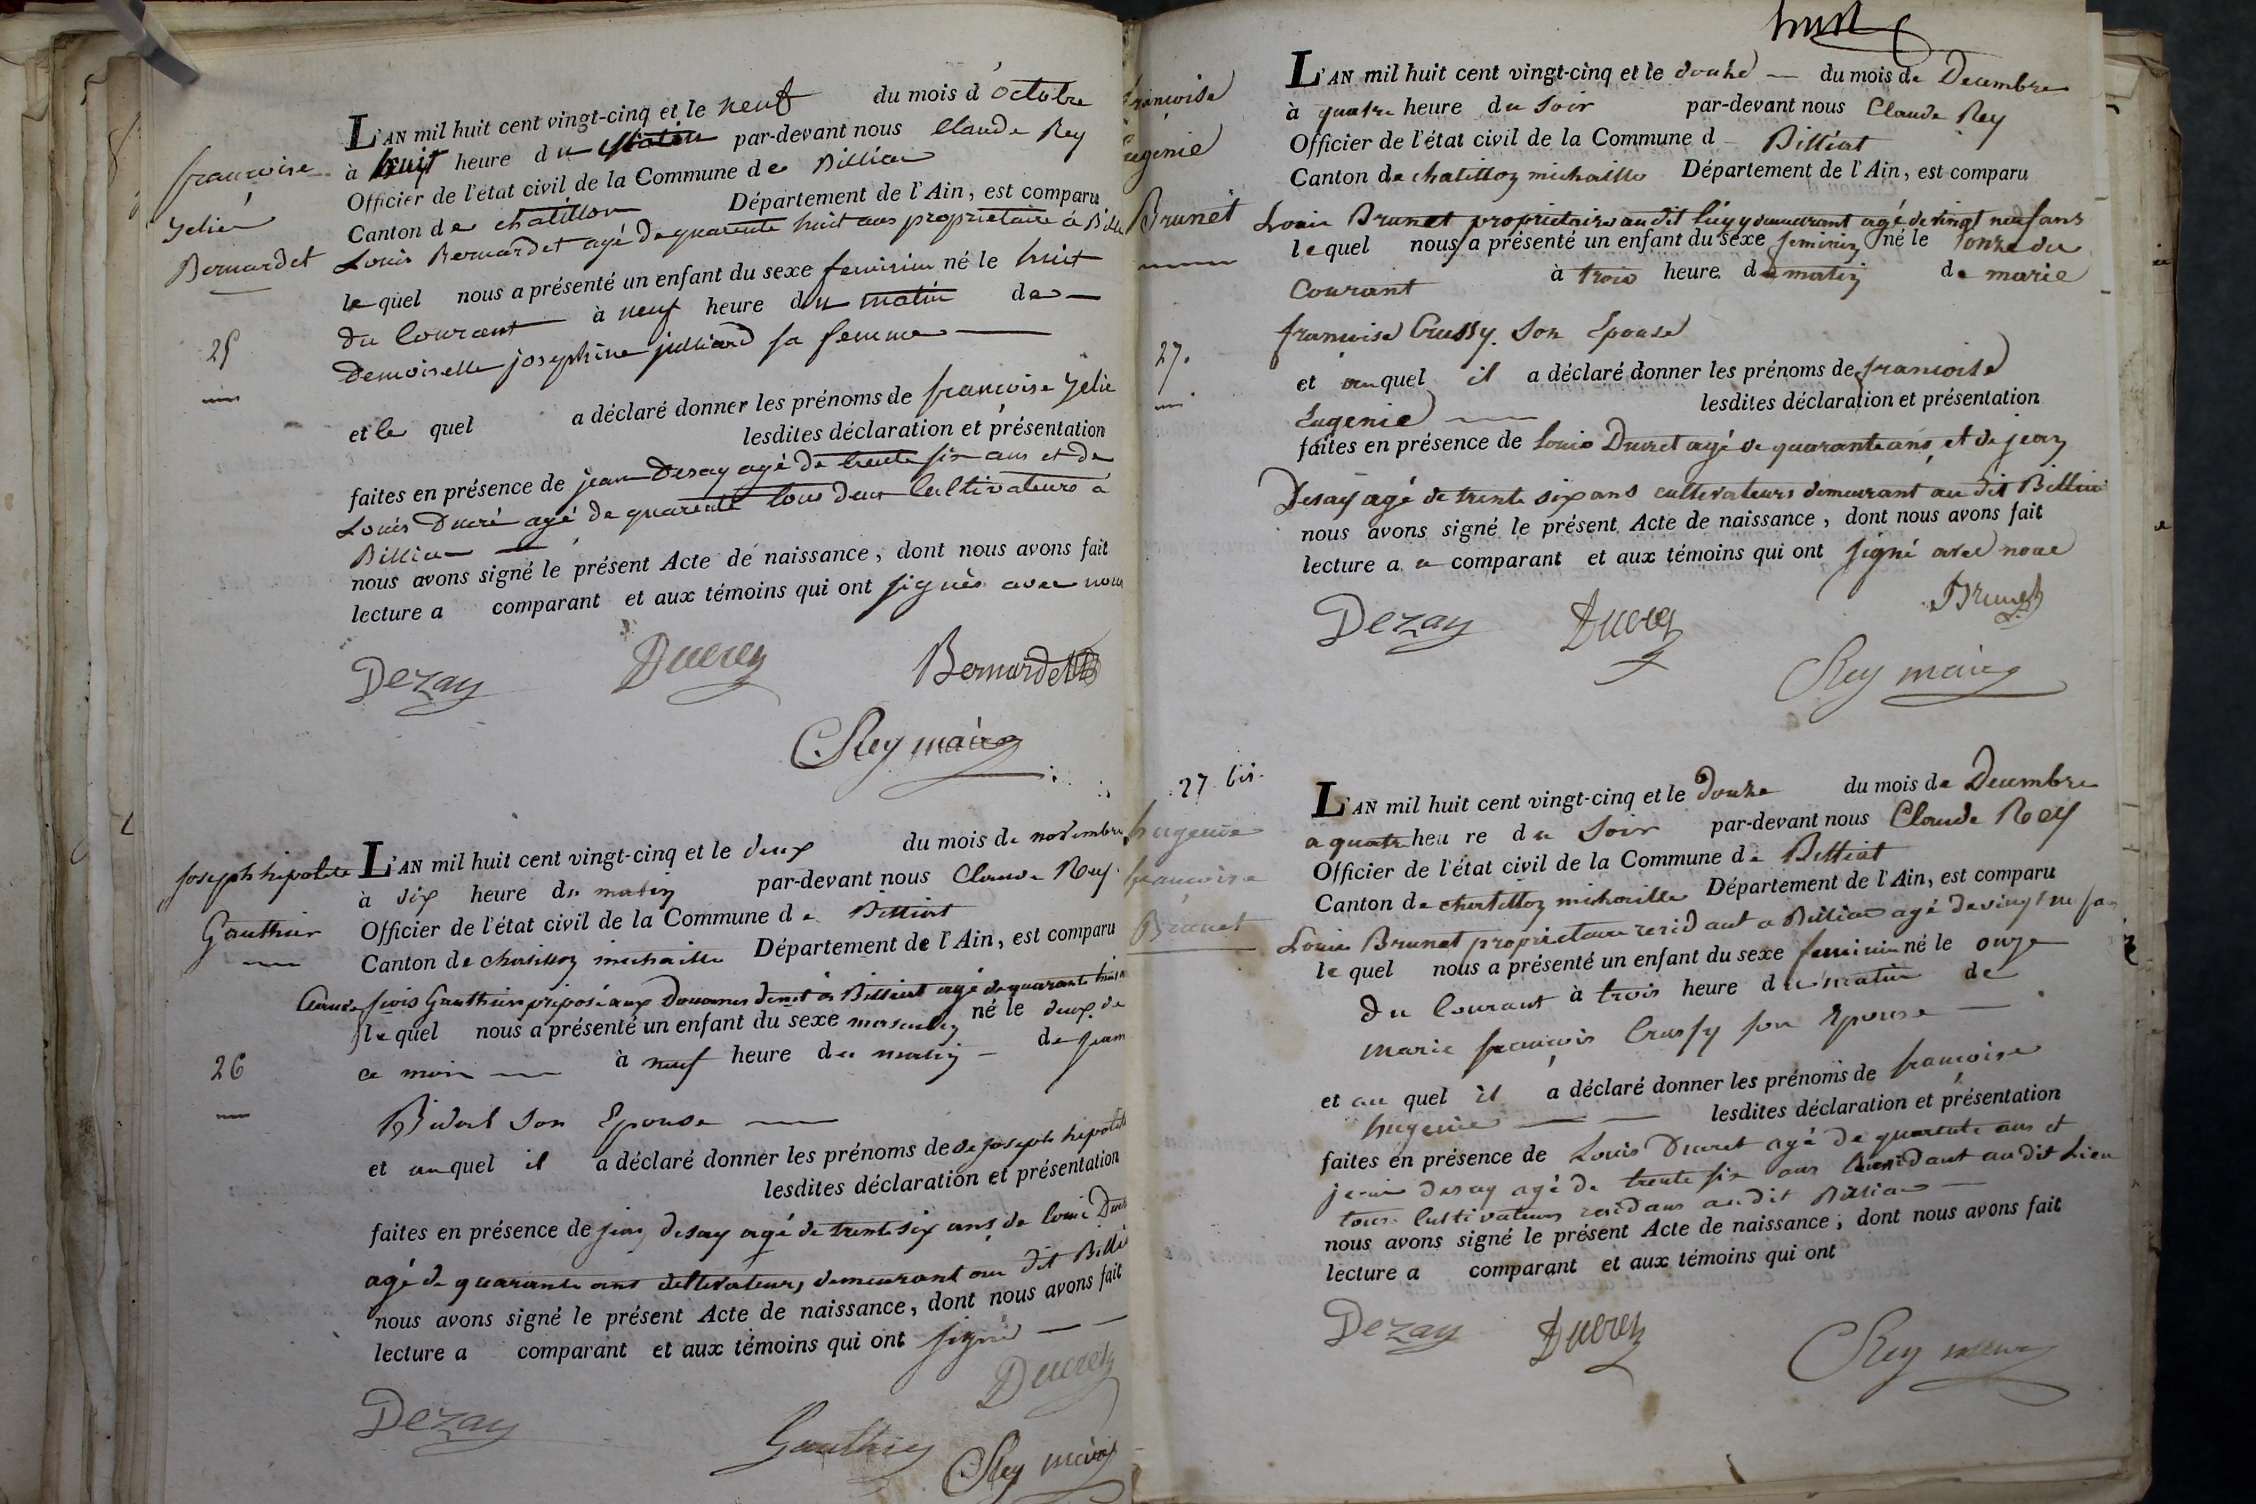 françoise
Zelié
Bernardet
25
L'AN mil huit cent vingt-cinq et le neuf du mois d'octobre
à huit heure du matin par-devant nous Claude Rey
Officier de l'état civil de la Commune de Billia
Canton de chatillon Département de l'Ain, est comparu
Louis Bernardet agé de quarente huit ans propriétaire à
le quel nous a présenté un enfant du sexe feminin né le huit
du Courant à neuf heure du matin de
Demoiselle josephine julliard sa femme
et le quel a déclaré donner les prénoms de francoise Zelie
lesdites déclaration et présentation
faites en présence de jean Desay agé de trente six ans et de
Louis Ducré agé de quarente tous deux Cultivateurs à
Billia
nous avons signé le présent Acte de naissance, dont nous avons fait
lecture a comparant et aux témoins qui ont signés avec nous
Dezay Ducrey Bernardet
CRey maire
joseph hipolite
Gauthier
26
L'AN mil huit cent vingt-cinq et le deux du mois de novembre
à six heure du matin par-devant nous Claude Rey
Officier de l'état civil de la Commune de Billiat
Canton de chatillon michaille Département de l'Ain, est comparu
Gauthier préposé aux Douanes à Billiat agé de quarante
le quel nous a présenté un enfant du sexe masculin né le deux de
ce mois à neuf heure du matin de
son Epouse
et au quel il a déclaré donner les prénoms de de joseph hipolite
lesdites déclaration et présentation
faites en présence de jean desay agé de trente six ans de Louis
agé de quarante ans cultivateurs demeurant au dit
nous avons signé le présent Acte de naissance, dont nous avons fait
lecture a comparant et aux témoins qui ont signé
Ducrey
Dezay Gauthier CRey maire
huit
françoise
Eugenie
Brunet
27.
L'AN mil huit cent vingt-cinq et le douze du mois de Decembre
à quatre heure du soir par-devant nous Claude Rey
Officier de l'état civil de la Commune d Billiat
Canton de chatillon michaille Département de l'Ain, est comparu
Louis Brunet propriétaire audit lieu y demeurant agé de vingt neuf ans
lequel nous a présenté un enfant du sexe feminin né le onze du
Courant à trois heure du matin de marie
françoise Crussy son Epouse
et au quel il a déclaré donner les prénoms de francoise
Eugenie lesdites déclaration et présentation
faites en présence de Louis Ducret agé de quarante ans, et de jean
Desay agé de trente six ans cultivateurs demeurant au dit Billiat
nous avons signé le présent Acte de naissance, dont nous avons fait
lecture a u comparant et aux témoins qui ont signé avec nous
Dezay Ducrey Brunet
CRey maire
27 bis.
hugenie
françoise
Brunet
L'AN mil huit cent vingt-cinq et le douze du mois de Decembre
a quatre heure du soir par-devant nous Claude Rey
Officier de l'état civil de la Commune de Billiat
Canton de chatillon michaille Département de l'Ain, est comparu
Louis Brunet propriétaire residant a Billiat agé de vingt neuf
le quel nous a présenté un enfant du sexe feminin né le onze
du Courant à trois heure du matin de
marie françois Crussy son Epouse
et au quel il a déclaré donner les prénoms de françoise
hugenie lesdites déclaration et présentation
faites en présence de Louis Ducret agé de quarente ans et
jean desay agé de trente six ans residant au dit Lieu
tous Cultivateurs residans au dit Billiat
nous avons signé le présent Acte de naissance, dont nous avons fait
lecture a comparant et aux témoins qui ont
Dezay Ducrey CRey maire